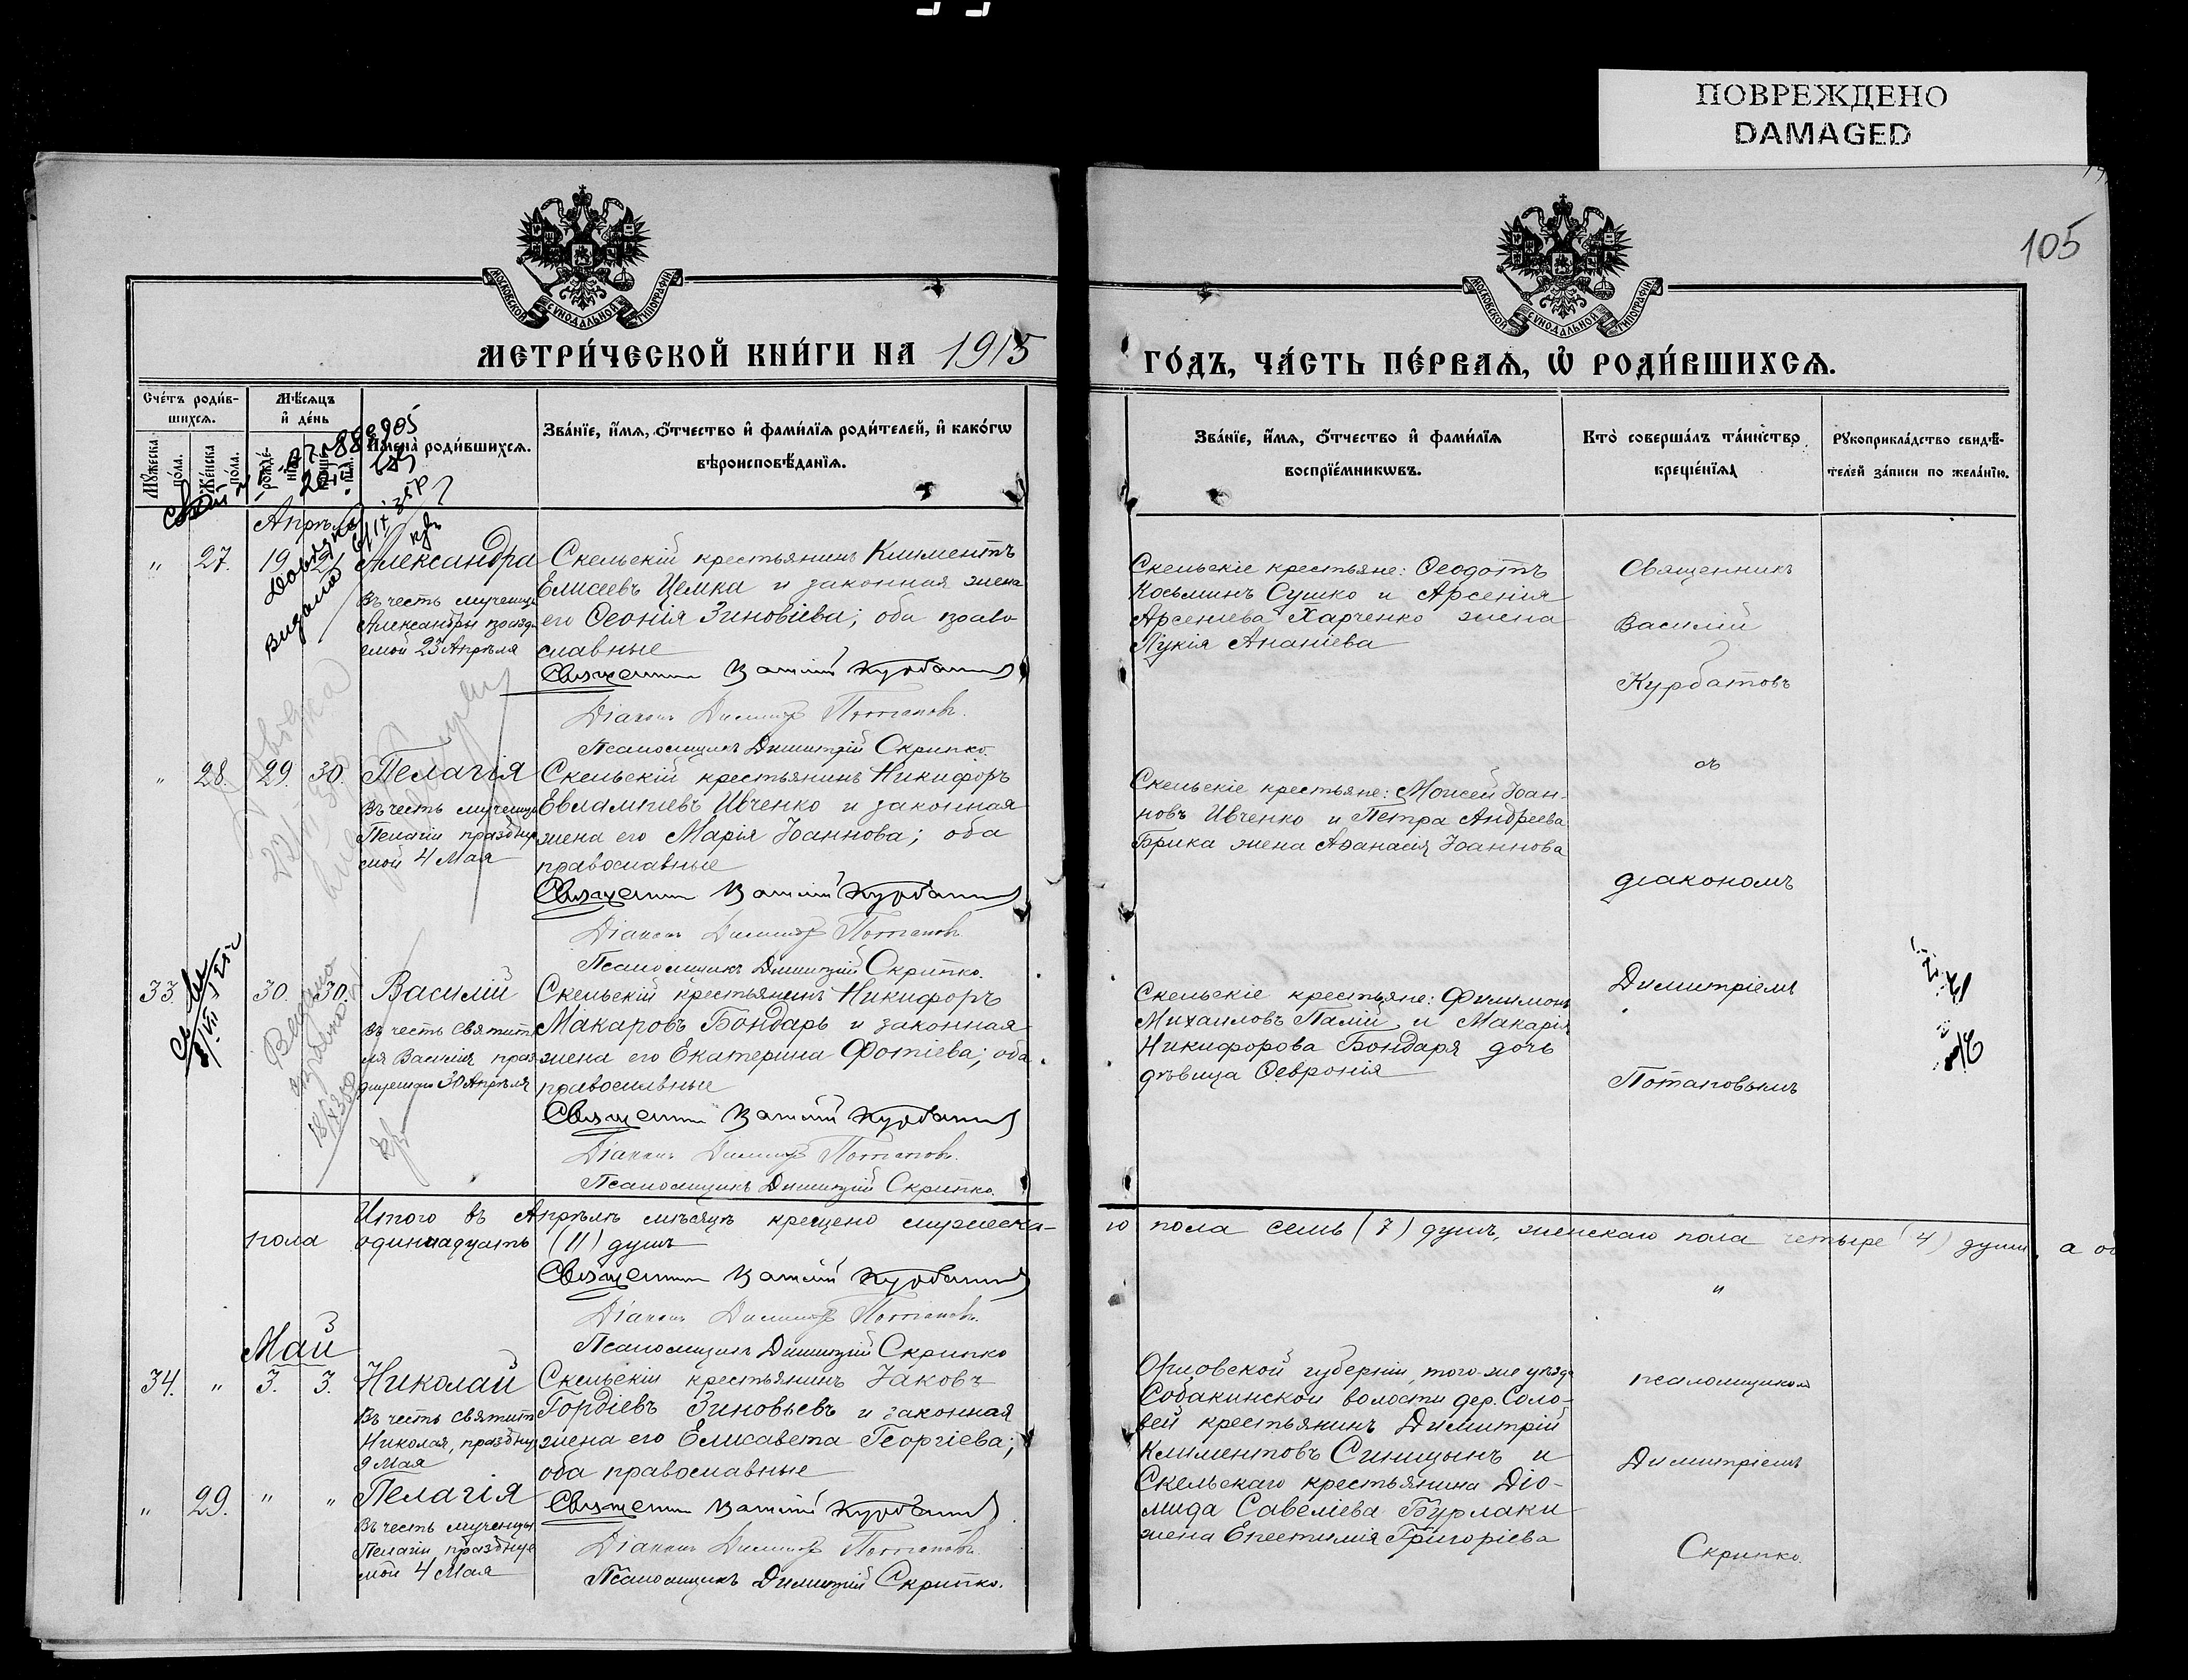 ПОВРЕЖДЕНО
DAMAGED
105
МОСКОВСКОЙ СУНОДАЛЬНОЙ ТИПОГРАФІИ
МОСКОВСКОЙ СУНОДАЛЬНОЙ ТИПОГРАФІИ
МЕТРИ́ЧЕСКОЙ КНИ́ГИ НА 1915
ГО́ДЪ, ЧА́СТЬ ПЕ́РВАѦ, Ѡ҆ РОДИ́ВШИХСѦ.
Сче́тъ роди́в-
шихсѧ.
Мꙋ́жеска по́ла.
Же́нска по́ла.
Мѣ́сѧцъ
и҆ де́нь
рожде́-
нїѧ.
креще́-
нїѧ.
И҆мена̀ роди́вшихсѧ.
Зва́нїе, и҆́мѧ, ѻ҆́тчество и҆ фами́лїѧ роди́телей, и҆ како́гѡ
вѣроисповѣ́данїѧ.
Зва́нїе, и҆́мѧ, ѻ҆́тчество и҆ фами́лїѧ
воспрїе́мникѡвъ.
Кто̀ соверша́лъ та́инство
креще́нїѧ
Рꙋкоприкла́дство свидѣ́-
телей за́писи по жела́нїю.
Апрѣль
" 27. 19 21 Александра
Въ честь мученицы
Александры празд.
емой 23 Апрѣля
Скельскій крестьянинъ Климентъ
Елисеевъ Цемка и законная жена
его Ѳеонія Зиновіева; оба право-
славные
Священникъ Василій Курбатовъ
Діаконъ Димитрій Потаповъ.
Псаломщикъ Димитрій Скрипко.
Скельскіе крестьяне: Ѳеодотъ
Косьминъ Сушко и Арсенія
Арсеніева Харченко жена
Лукія Ананіева
Священникъ
Василій
Курбатовъ
съ
діакономъ
Димитріемъ
Потаповымъ
" 28. 29. 30. Пелагія
Въ честь мученицы
Пелагіи празднуе
мой 4 Мая
Скельскій крестьянинъ Никифоръ
Евлампіевъ Ивченко и законная
жена его Марія Іоаннова; оба
православные
Священникъ Василій Курбатовъ
Діаконъ Димитрій Потаповъ
Псаломщикъ Димитрій Скрипко.
Скельскіе крестьяне: Моисей Іоан-
новъ Ивченко и Петра Андреева
Брика жена Аѳанасія Іоаннова
33. 30. 30. Василій
Въ честь Святите
ля Василія праз
днуемаго 30 Апрѣля
Скельскій крестьянинъ Никифоръ
Макаровъ Бондарь и законная
жена его Екатерина Фотіева; оба
православные
Священникъ Василій Курбатовъ
Діаконъ Димитрій Потаповъ.
Псаломщикъ Димитрій Скрипко.
Скельскіе крестьяне: Филимонъ
Михаиловъ Палій и Макарія
Никифорова Бондаря дочь
дѣвица Ѳевронія
Итого въ Апрѣлѣ мѣсяцѣ крещено мужеска-
го пола семь (7) душъ, женскаго пола четыре (4) души, а об
пола одиннадцать (11) душъ
Священникъ Василій Курбатовъ
Діаконъ Димитрій Потаповъ.
Псаломщикъ Димитрій Скрипко
Май
34. " 3. 3. Николай
Въ честь Святит
Николая, праздну
9 Мая
Скельскій крестьянинъ Іаковъ
Гордіевъ Зиновьевъ и законная
жена его Елисавета Георгіева;
оба православные
" 29. " " Пелагія
Въ честь мученицы
Пелагіи празднуе
мой 4 Мая
Священникъ Василій Курбатовъ
Діаконъ Димитрій Потаповъ
Псаломщикъ Димитрій Скрипко.
Орловской губерніи, того-же уѣзда
Собакинской волости дер. Соло-
вей крестьянинъ Димитрій
Климентовъ Синицынъ и
Скельскаго крестьянина Діо-
мида Савеліева Бурлаки
жена Епестимія Григоріева
псаломщикомъ
Димитріемъ
Скрипко.